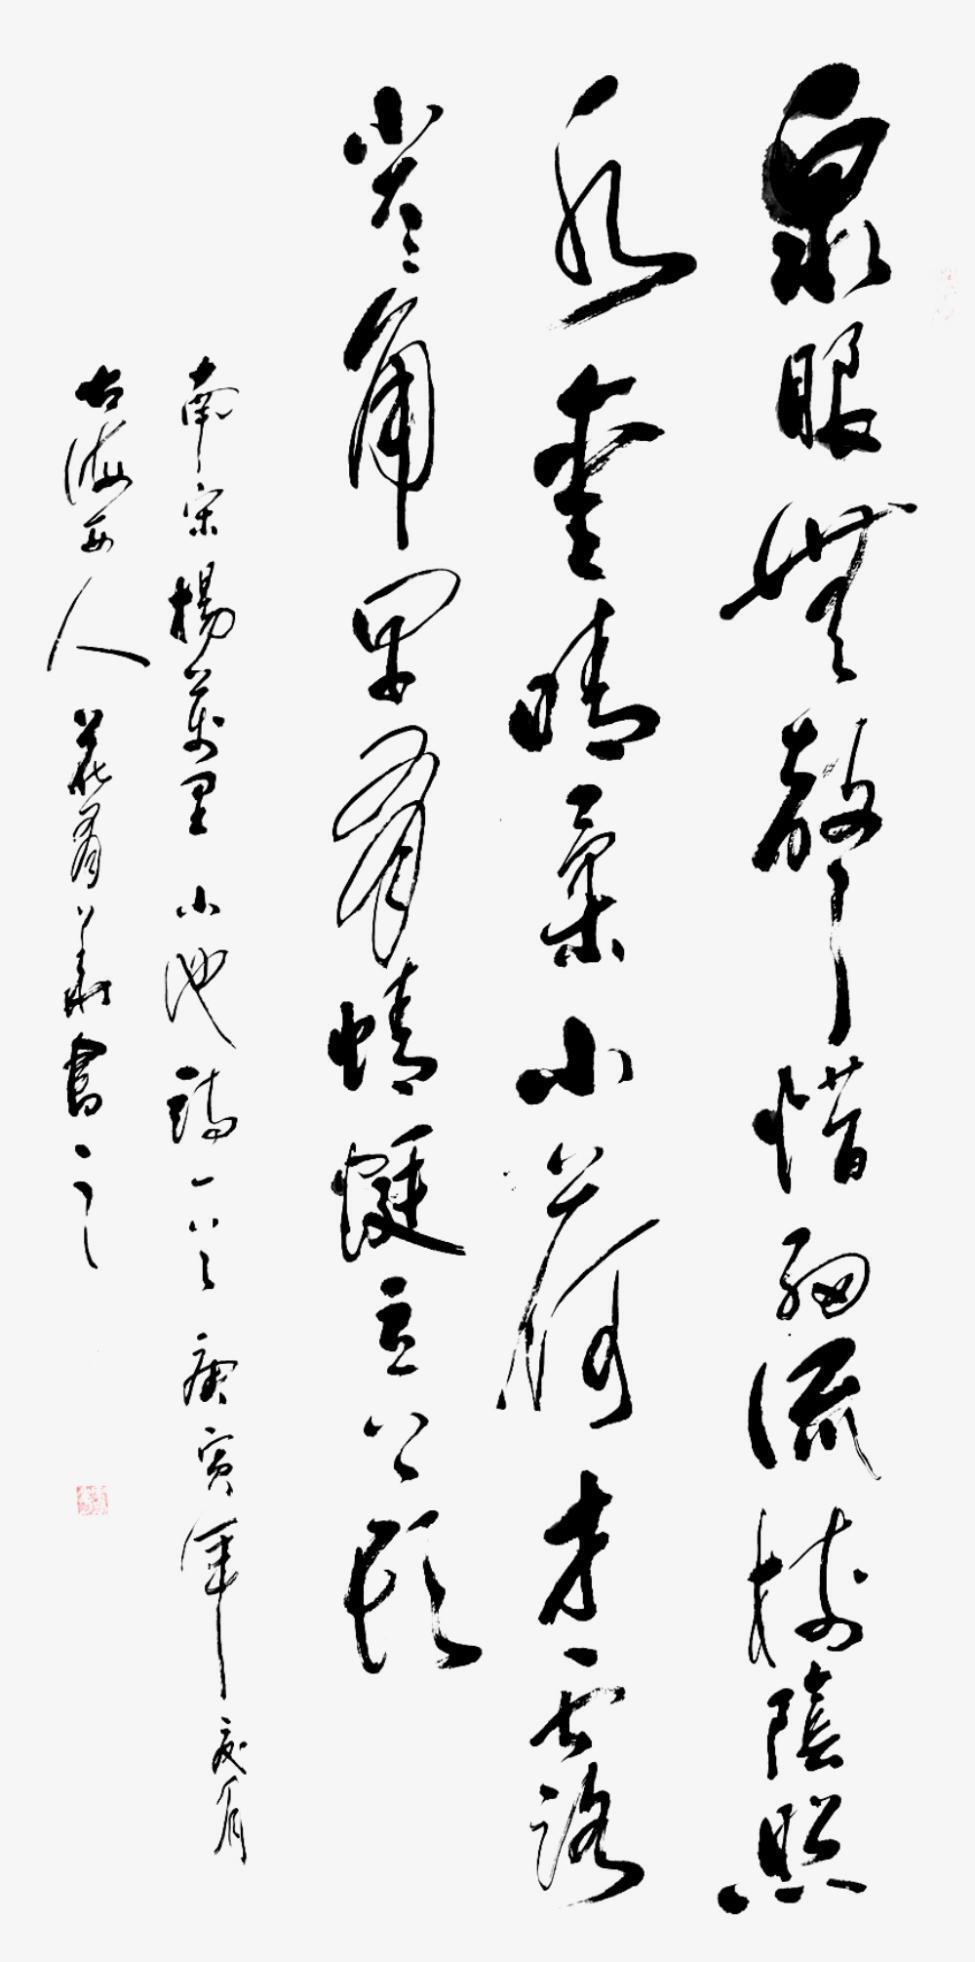 泉眼無聲惜細流樹陰照
水愛晴柔小荷才露
尖尖角早有蜻蜓立上頭
南宋楊萬里 小池詩一首 庚寅年夏月
古海人 書之